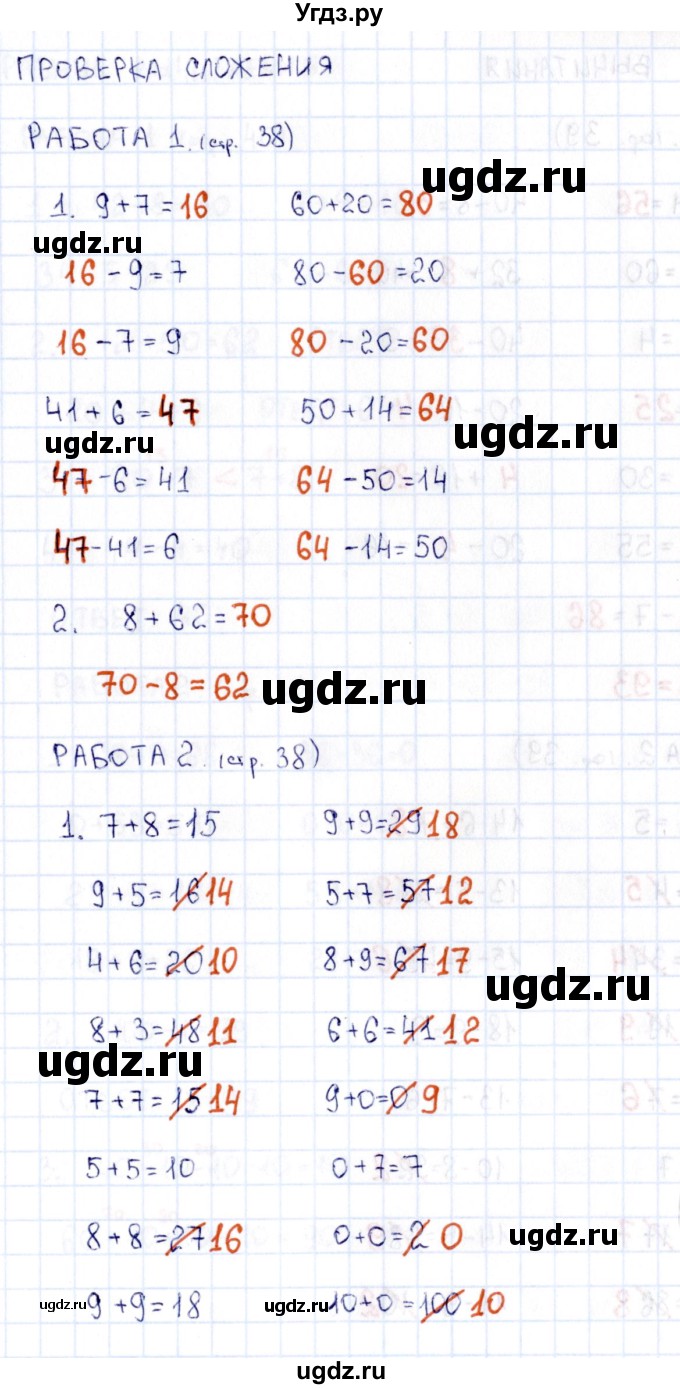 Угдз.ру
ПРОВЕРКА СЛОЖЕНИЯ
РАБОТА 1. (стр. 38)
ugdz.ru
1. 9+7=16 60+20=80
ugdz.ru
16-9=7 80-60=20
16-7=9 80-20=60
41+6=47 50+14=64
ugdz.ru ugdz.ru
47-6=41 64-50=14
47-41=6 64-14=50
2. 8+62=70
70-8=62 ugdz.ru
РАБОТА 2. (стр. 38)
1. 7+8=15 9+9=29 18
9+5=16 14 5+7=57 12
4+6=20 10 8+9=67 17
ugdz.ru
8+3=48 11 6+6=41 12
ugdz.ru
7+7=15 14 9+0=0 9
5+5=10 0+7=7
8+8=27 16 0+0=2 0
ugdz.ru
ugdz.ru 9+9=18 ugdz.ru 10+0=100 10
ugdz.ru